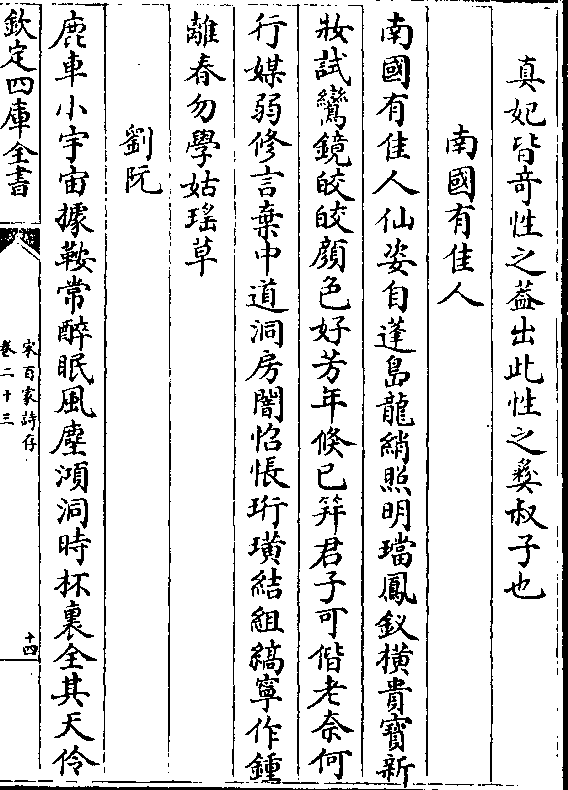 真妃皆竒性之葢出此性之彛叔子也
南國有佳人
南國有佳人仙姿自蓬島龍綃照明璫鳳釵橫貴寳新
妝試鸞鏡皎皎顔色好芳年倐已笄君子可偕老奈何
行媒弱修言棄中道洞房闇怊悵珩璜結組縞寧作鍾
離春勿學姑瑶草
劉阮
鹿車小宇宙據鞍常醉眠風塵澒洞時杯裏全其天伶
欽定四庫全書
宋百家詩存
卷二十三
十四